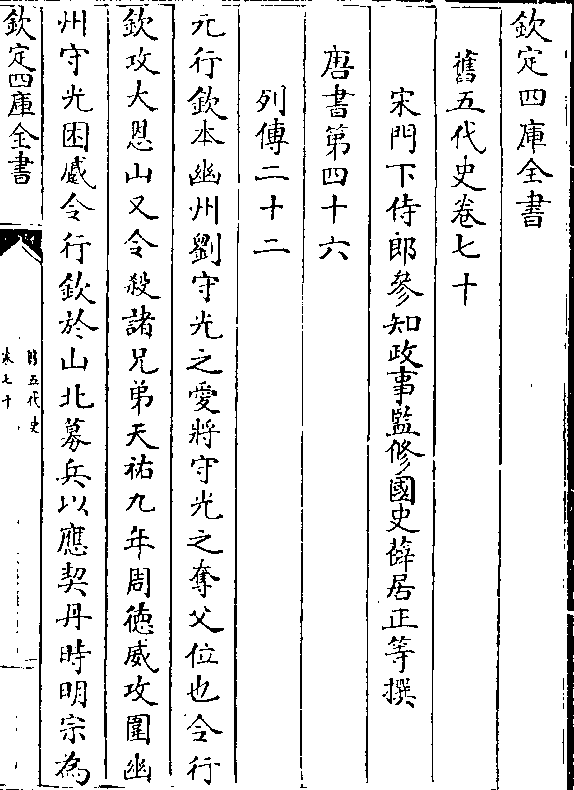 欽定四庫全書
舊五代史卷七十
宋門下侍郎參知政事監修國史薛居正等撰
唐書第四十六
列傳二十二
元行欽本幽州劉守光之愛將守光之奪父位也令行
欽攻大恩山又令殺諸兄弟天祐九年周德威攻圍幽
州守光困蹙令行欽於山北募兵以應契丹時明宗為
欽定四庫全書
舊五代史
卷七十